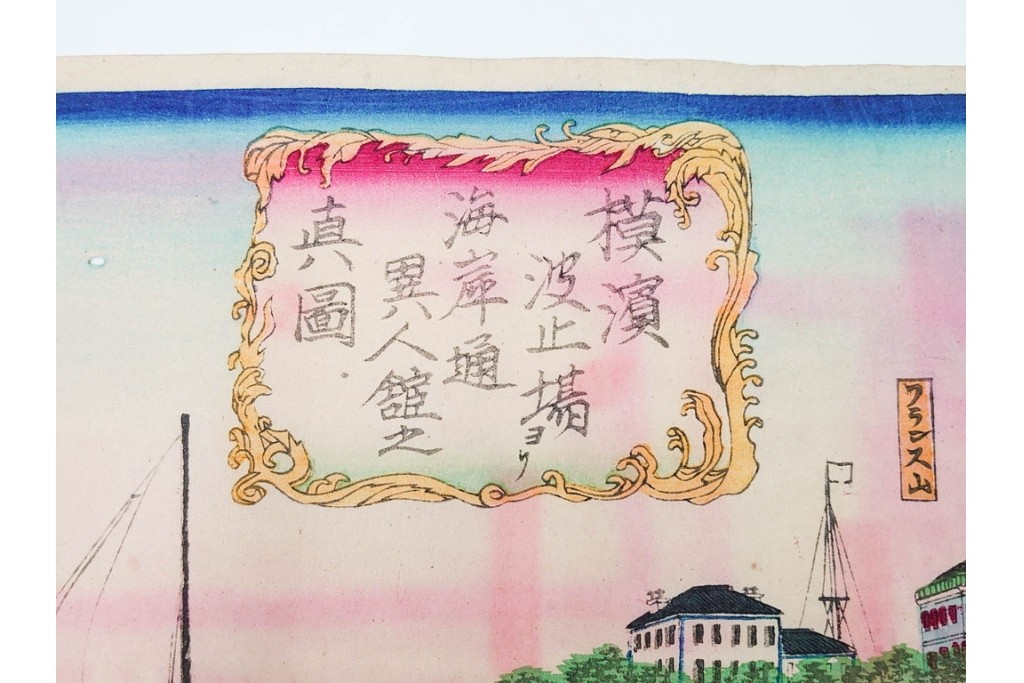 フランス山
模濱
波止場ヨリ
海岸通
異人舘之
真圖